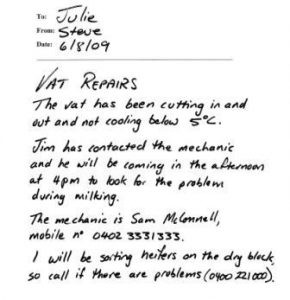 To: Julie
From: Steve
Date: 6/8/09
VAT REPAIRS
The vat has been cutting in and
out and not cooling below 5°C.
Jim has contacted the mechanic
and he will be coming in the afternoon
at 4pm to look for the problem
during milking.
The mechanic is Sam McConnell,
mobile nº 0402 3331333.
I will be sorting heifers on the dry block,
so call if there are problems (0400 221000).